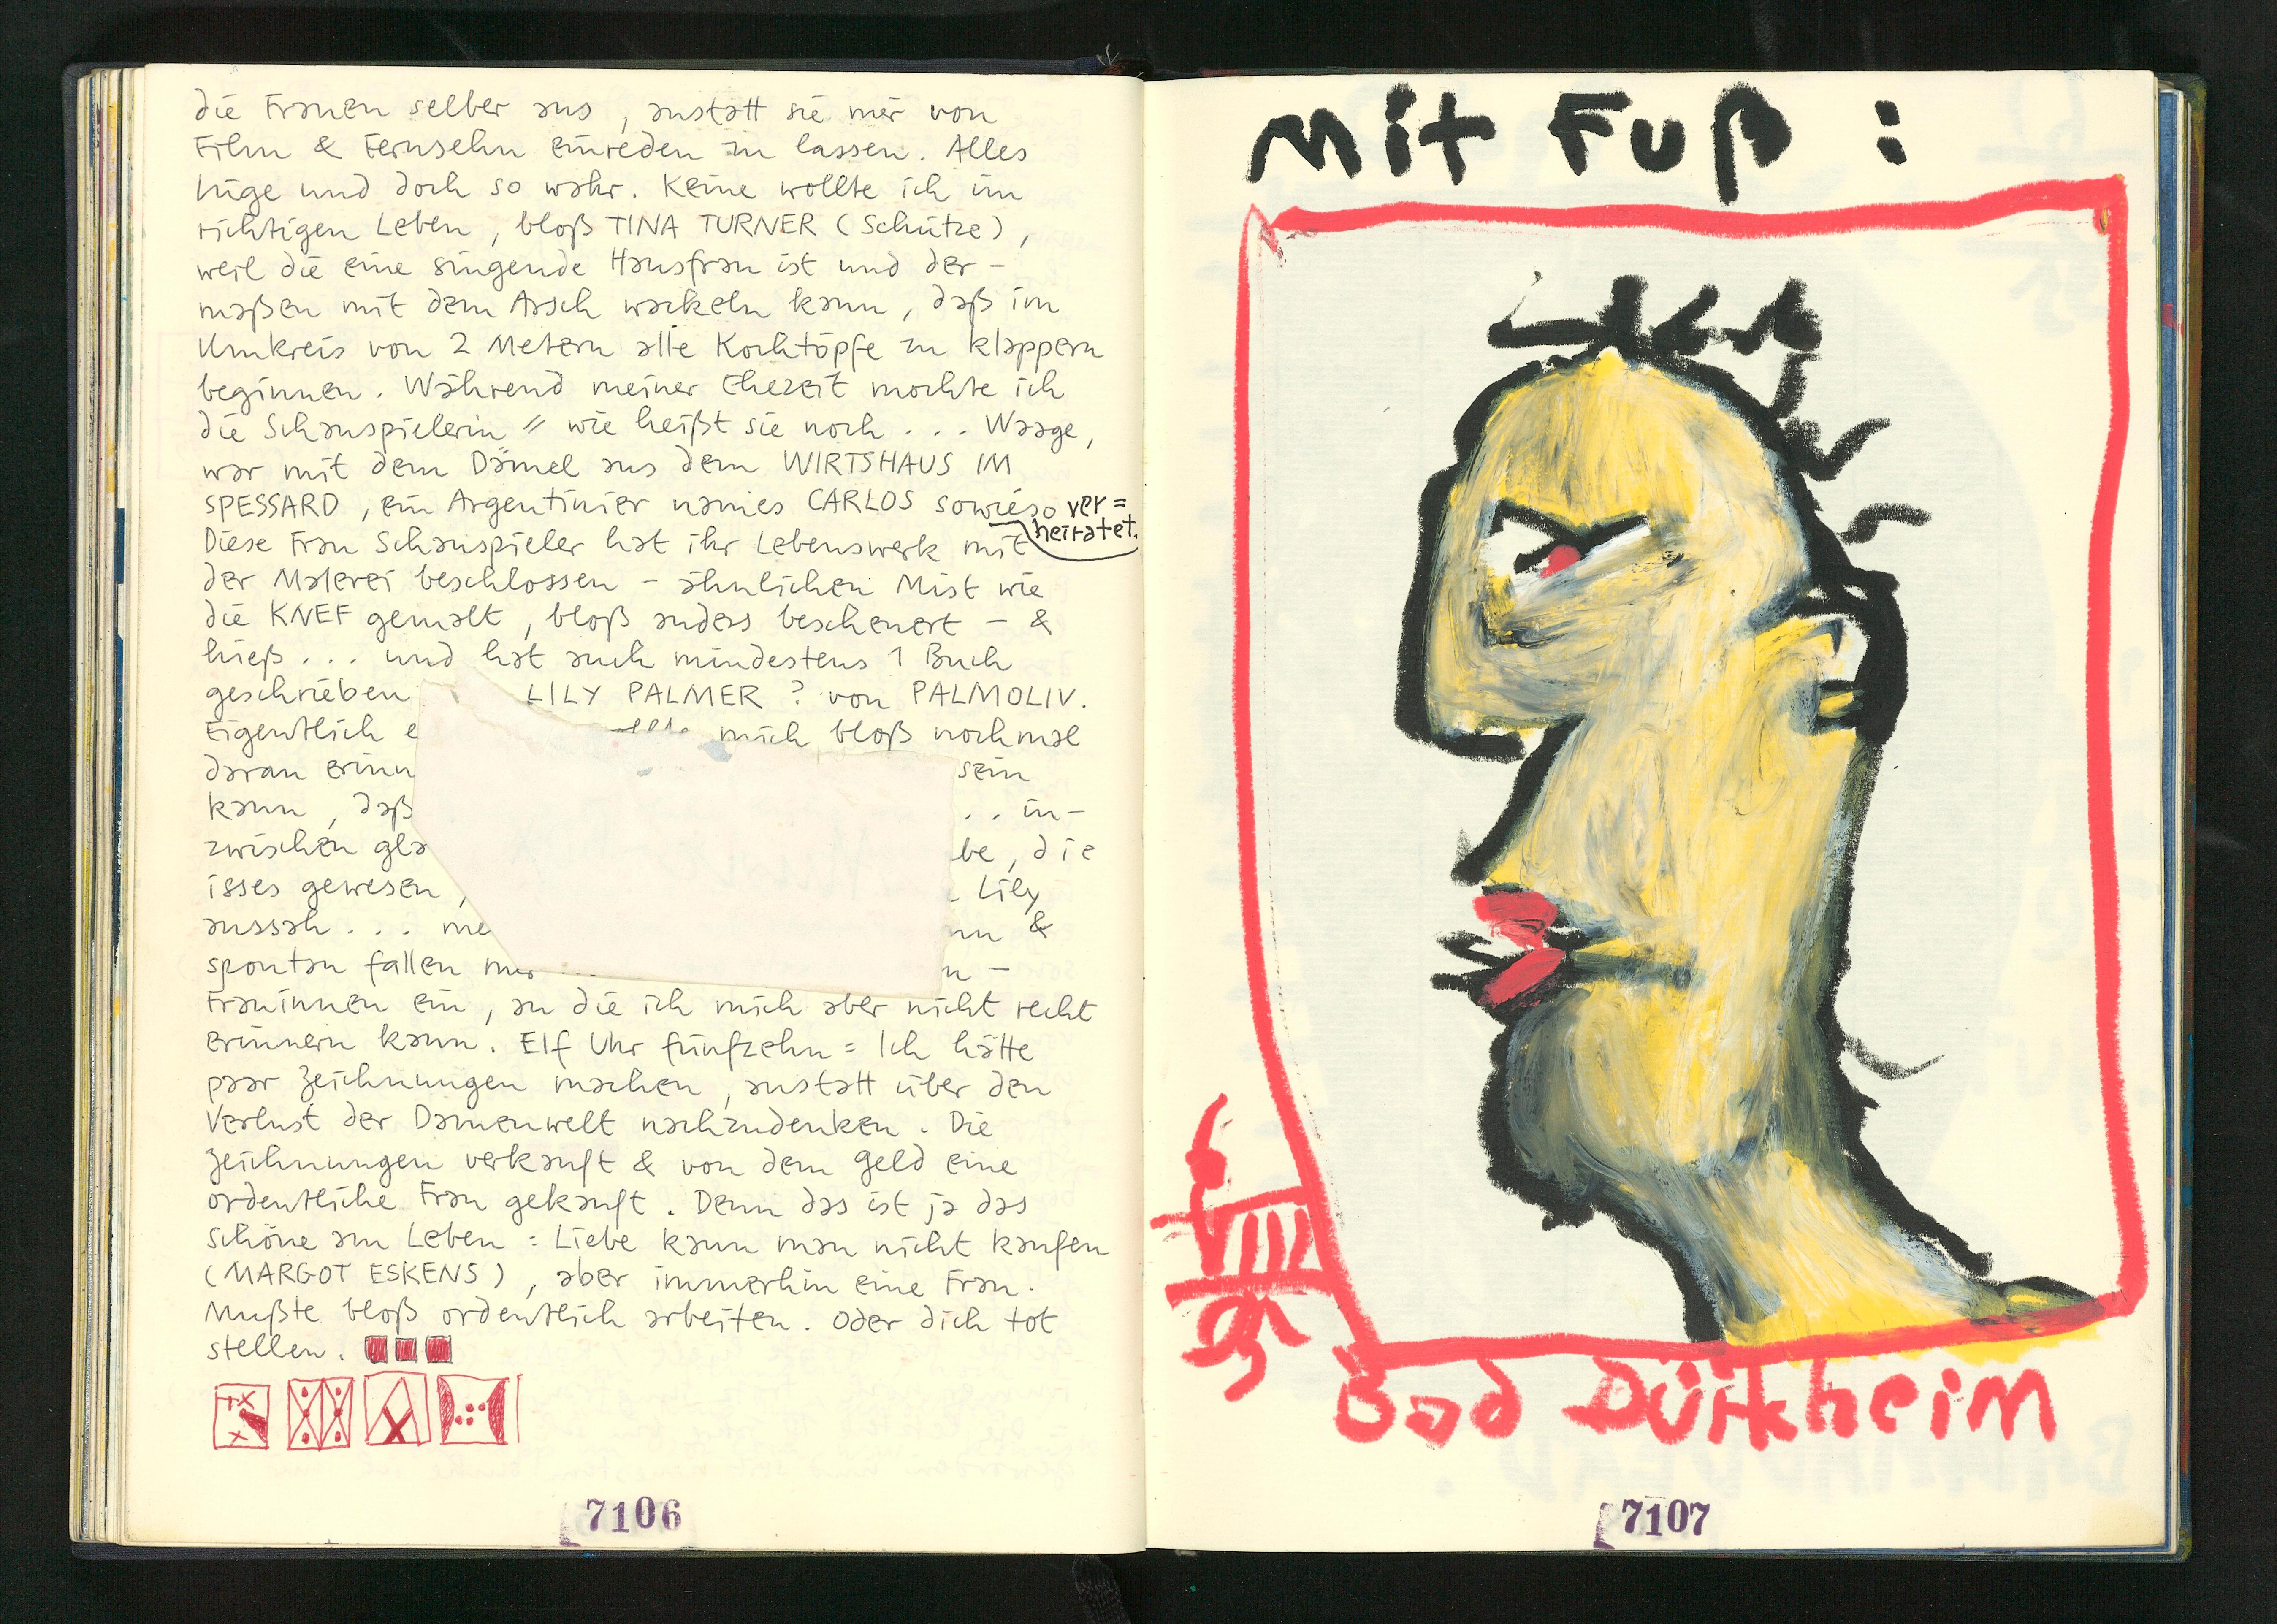 die Frauen selber aus, anstatt sie mir von
Film & Fernsehn einreden zu lassen. Alles
Lüge und doch so wahr. Keine wollte ich im
richtigen Leben, bloß TINA TURNER (Schütze),
weil die eine singende Hausfrau ist und der-
maßen mit dem Arsch wackeln kann, daß im
Umkreis von 2 Metern alle Kochtöpfe zu klappern
beginnen. Während meiner Ehezeit mochte ich
die Schauspielerin // wie heißt sie noch . . . Waage,
war mit dem Dämel aus dem WIRTSHAUS IM
SPESSARD, ein Argentinier namies CARLOS sowieso ver=
heiratet.
Diese Frau Schauspieler hat ihr Lebenswerk mit
der Malerei beschlossen – ähnlichen Mist wie
die KNEF gemalt, bloß anders bescheuert – &
hieß . . . und hat auch mindestens 1 Buch
geschrieben LILY PALMER ? von PALMOLIV.
Eigentlich e mich bloß nochmal
daran erinn sein
kann, daß . . in-
zwischen gla be, die
isses gewesen, Lily
aussah . . . me nn &
spontan fallen mir n-
Frauinnen ein, an die ich mich aber nicht recht
erinnern kann. Elf Uhr fünfzehn = Ich hätte
paar Zeichnungen machen, anstatt über den
Verlust der Damenwelt nachzudenken. Die
Zeichnungen verkauft & von dem Geld eine
ordentliche Frau gekauft. Denn das ist ja das
Schöne am Leben = Liebe kann man nicht kaufen
(MARGOT ESKENS), aber immerhin eine Frau.
Mußte bloß ordentlich arbeiten. Oder dich tot
stellen.
7106
Mit Fuß :
VIII
Bad Dürkheim
7107